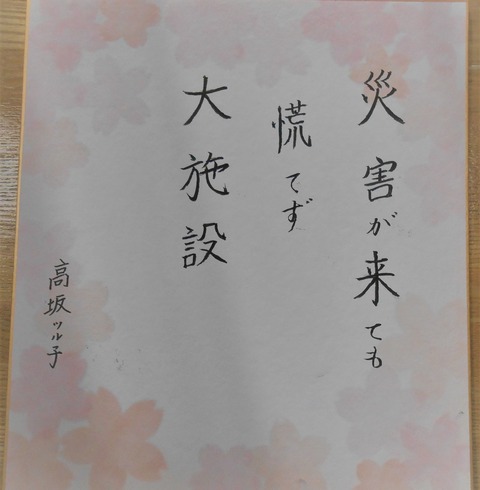 災害が来ても
慌てず
大施設
高坂ツル子